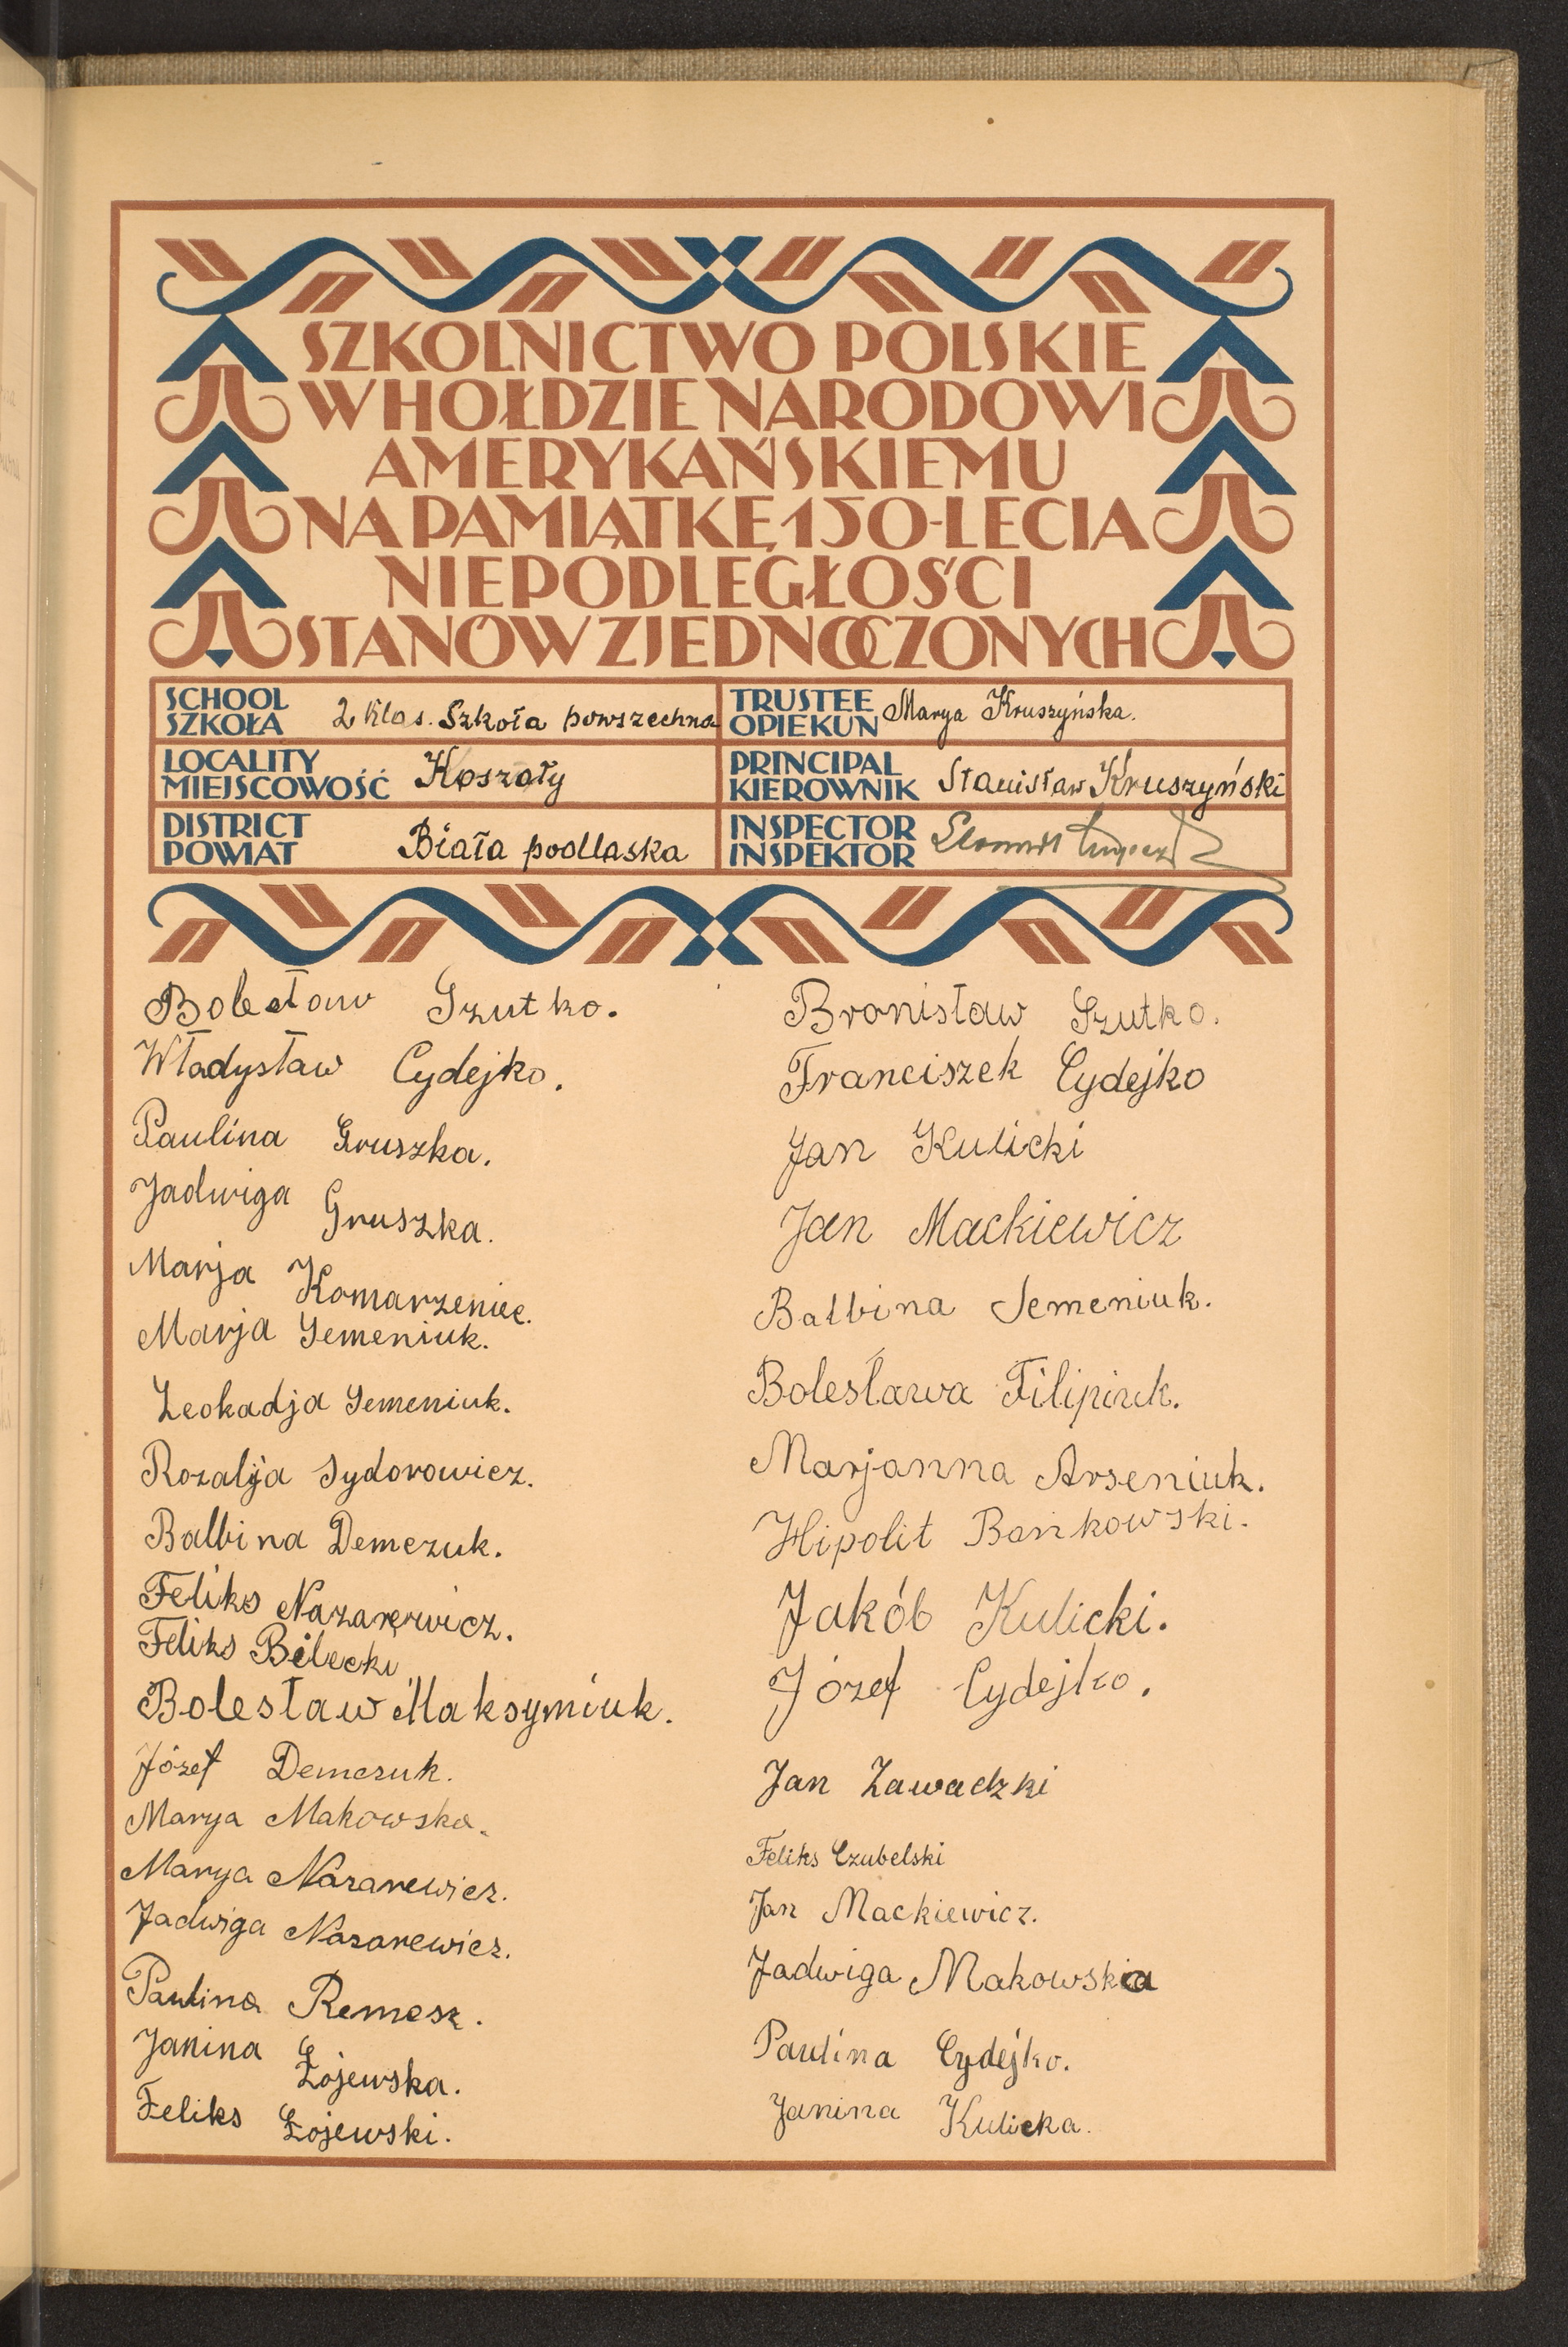 SZKOLNICTWO POLSKIE
W HOŁDZIE NARODOWI
AMERYKAŃSKIEMU
NA PAMIĄTKĘ 150-LECIA
NIEPODLEGŁOŚCI
STANÓW ZJEDNOCZONYCH
SCHOOL
SZKOŁA
2 klas. Szkoła powszechna
TRUSTEE
OPIEKUN
Marya Kruszyńska.
LOCALITY
MIEJSCOWOŚĆ
Koszoły
PRINCIPAL
KIEROWNIK
Stanisław Kruszyński
DISTRICT
POWIAT
Biała podlaska
INSPECTOR
INSPEKTOR
Bolesław Szutko.
Władysław Cydejko.
Paulina Gruszka.
Jadwiga Gruszka.
Marja Komarzeniec.
Marja Semeniuk.
Leokadja Semeniuk.
Rozalija Sydorowicz.
Balbina Demczuk.
Feliks Nazarewicz.
Feliks Bilecki
Bolesław Maksymiuk.
Józef Demczuk.
Marya Makowska.
Marya Nazarewicz.
Jadwiga Nazarewicz.
Paulina Remesz.
Janina Łojewska.
Feliks Łojewski.
Bronisław Szutko.
Franciszek Cydejko
Jan Kulicki
Jan Mackiewicz
Balbina Semeniuk.
Bolesława Filipiuk.
Marjanna Arseniuk.
Hipolit Bańkowski.
Jakób Kulicki.
Józef Cydejko.
Jan Zawadzki
Feliks Czubelski
Jan Mackiewicz.
Jadwiga Makowska
Paulina Cydejko.
Janina Kulicka.